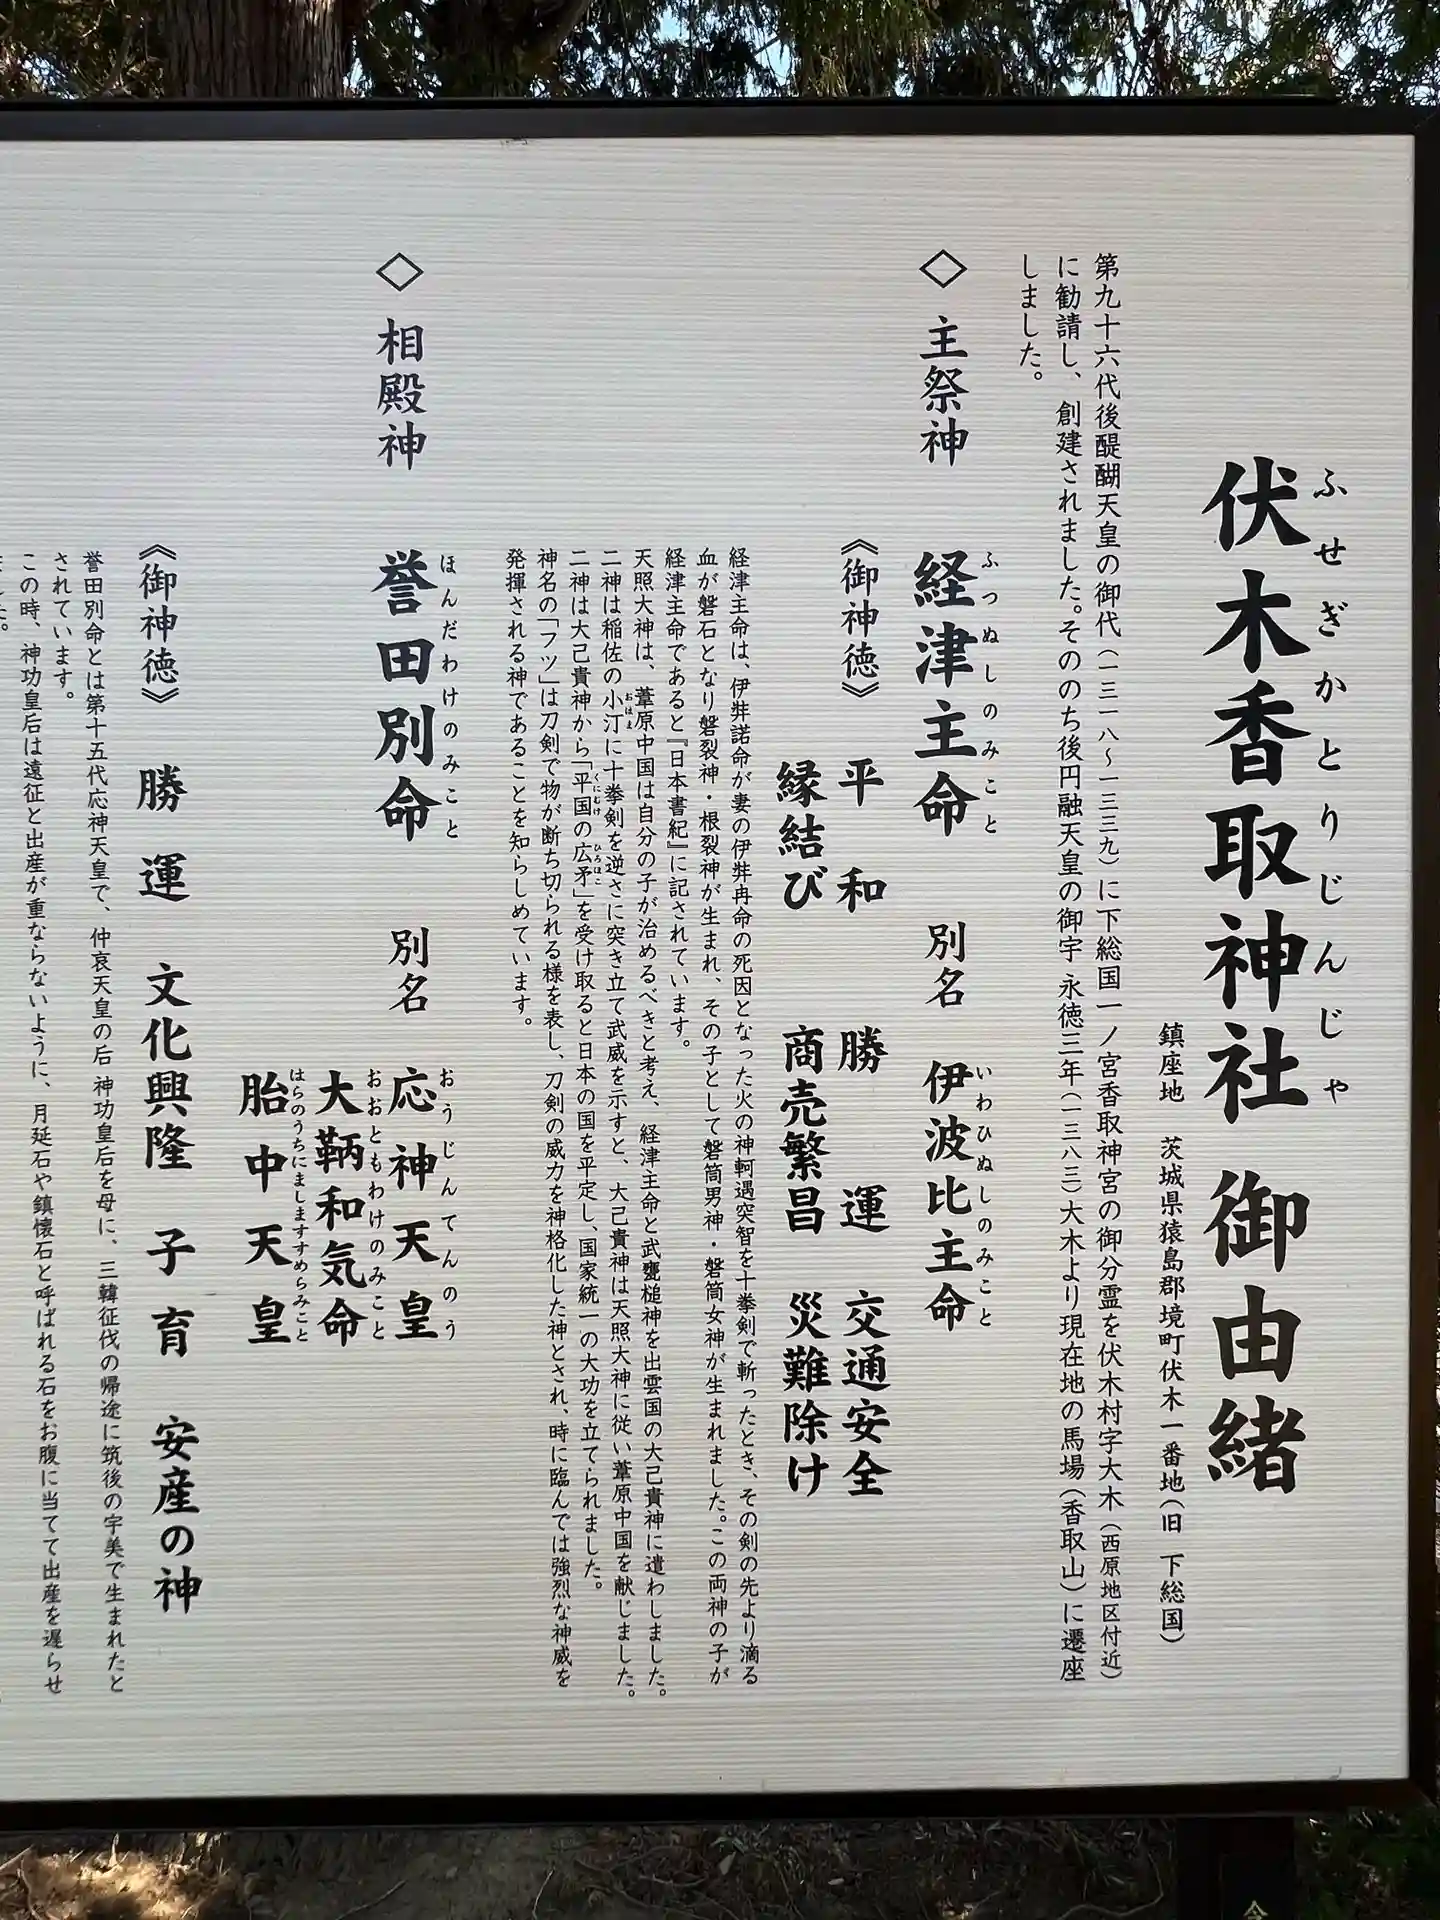 伏木香取神社 御由緒
ふせぎかとりじんじゃ
鎮座地 茨城県猿島郡境町伏木一番地(旧 下総国)
第九十六代後醍醐天皇の御代(一三一八〜一三三九)に下総国一ノ宮香取神宮の御分霊を伏木村字大木(西原地区付近)
に勧請し、創建されました。そののち後円融天皇の御宇 永徳三年(一三八三)大木より現在地の馬場(香取山)に遷座
しました。
◇ 主祭神 経津主命 別名 伊波比主命
ふつぬしのみこと いわひぬしのみこと
《御神徳》 平和 勝運 交通安全
縁結び 商売繁昌 災難除け
経津主命は、伊弉諾命が妻の伊弉冉命の死因となった火の神軻遇突智を十拳剣で斬ったとき、その剣の先より滴る
血が磐石となり磐裂神・根裂神が生まれ、その子として磐筒男神・磐筒女神が生まれました。この両神の子が
経津主命であると『日本書紀』に記されています。
天照大神は、葦原中国は自分の子が治めるべきと考え、経津主命と武甕槌神を出雲国の大己貴神に遣わしました。
二神は稲佐の小汀に十拳剣を逆さに突き立て武威を示すと、大己貴神は天照大神に従い葦原中国を献じました。
おはま
二神は大己貴神から「平国の広矛」を受け取ると日本の国を平定し、国家統一の大功を立てられました。
くにむけ ひろほこ
神名の「フツ」は刀剣で物が断ち切られる様を表し、刀剣の威力を神格化した神とされ、時に臨んでは強烈な神威を
発揮される神であることを知らしめています。
◇ 相殿神 誉田別命 別名 応神天皇
ほんだわけのみこと おうじんてんのう
大鞆和気命
おおともわけのみこと
胎中天皇
はらのうちにましますすめらみこと
《御神徳》 勝運 文化興隆 子育 安産の神
誉田別命とは第十五代応神天皇で、仲哀天皇の后 神功皇后を母に、三韓征伐の帰途に筑後の宇美で生まれたと
されています。
この時、神功皇后は遠征と出産が重ならないように、月延石や鎮懐石と呼ばれる石をお腹に当てて出産を遅らせ